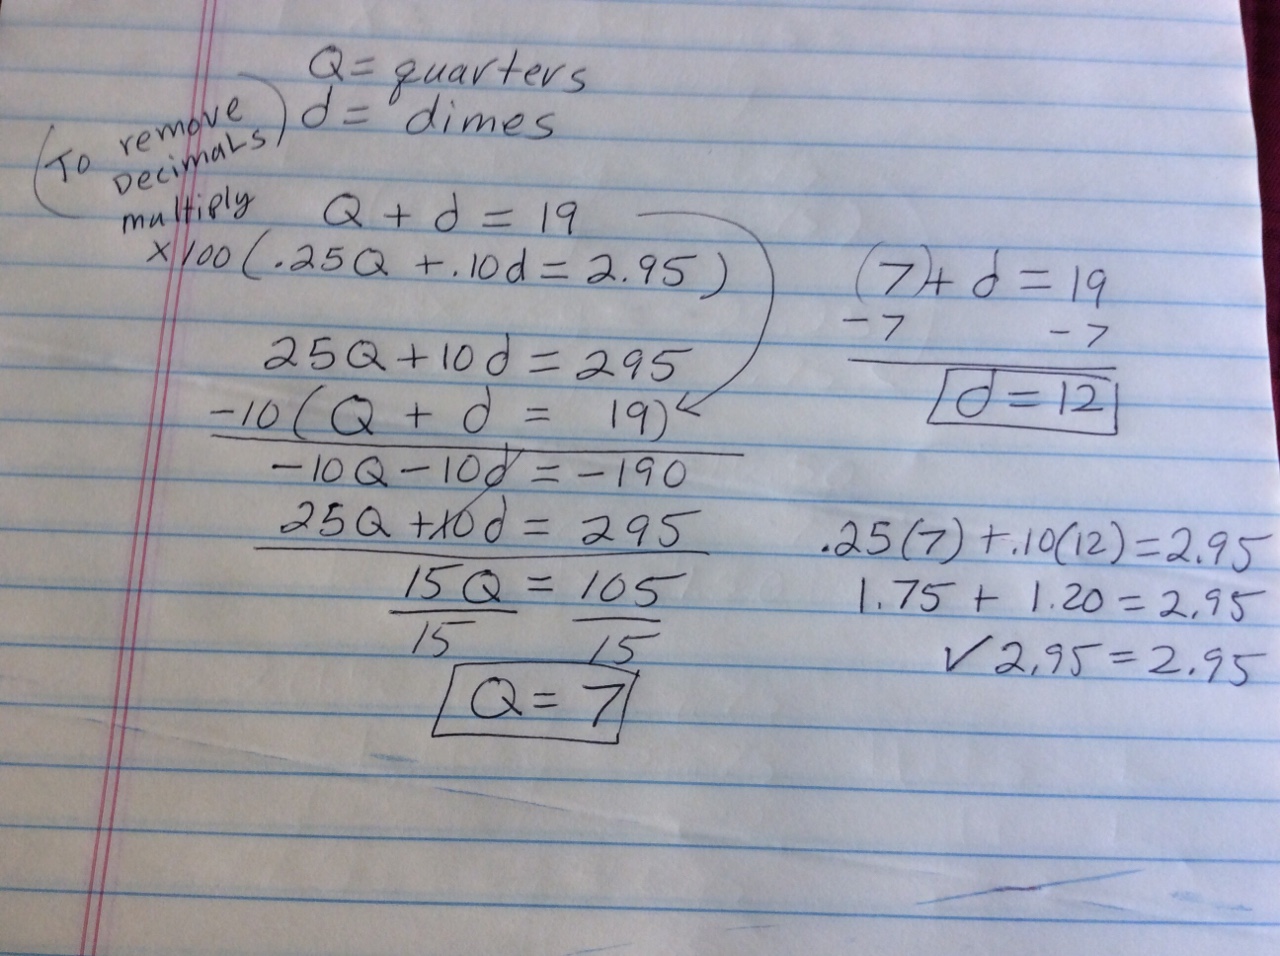 Q = quarters
d = dimes
(To remove
Decimals)
multiply
Q + d = 19
×100 (.25Q + .10d = 2.95)
25Q + 10d = 295
-10 (Q + d = 19)
-10Q - 10d = -190
25Q + 10d = 295
15Q = 105
15 15
Q = 7
(7) + d = 19
-7 -7
d = 12
.25(7) + .10(12) = 2.95
1.75 + 1.20 = 2.95
✓ 2.95 = 2.95